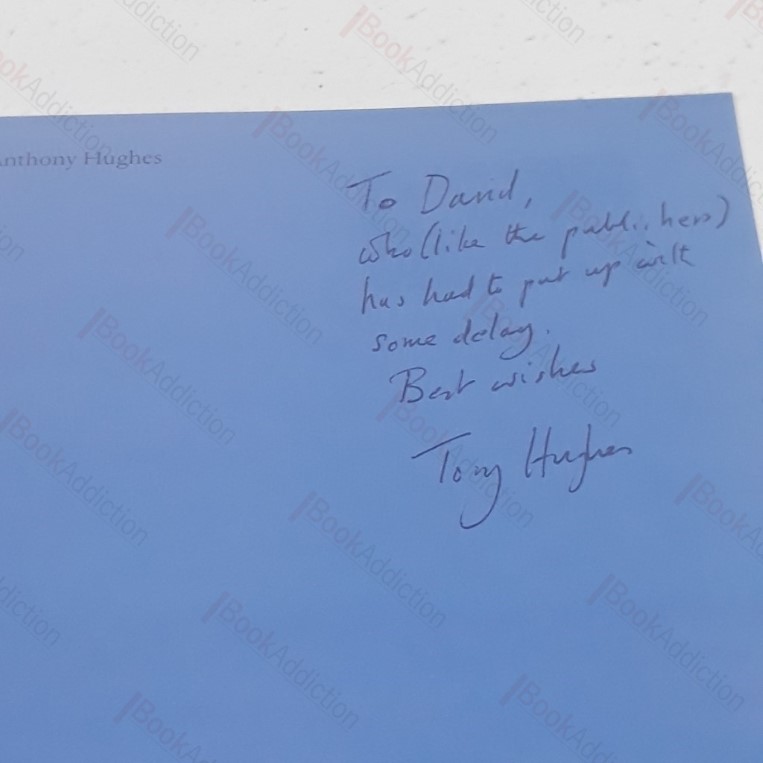 Anthony Hughes
To David,
who (like the publishers)
has had to put up with
some delay.
Best wishes
Tony Hughes
BookAddiction